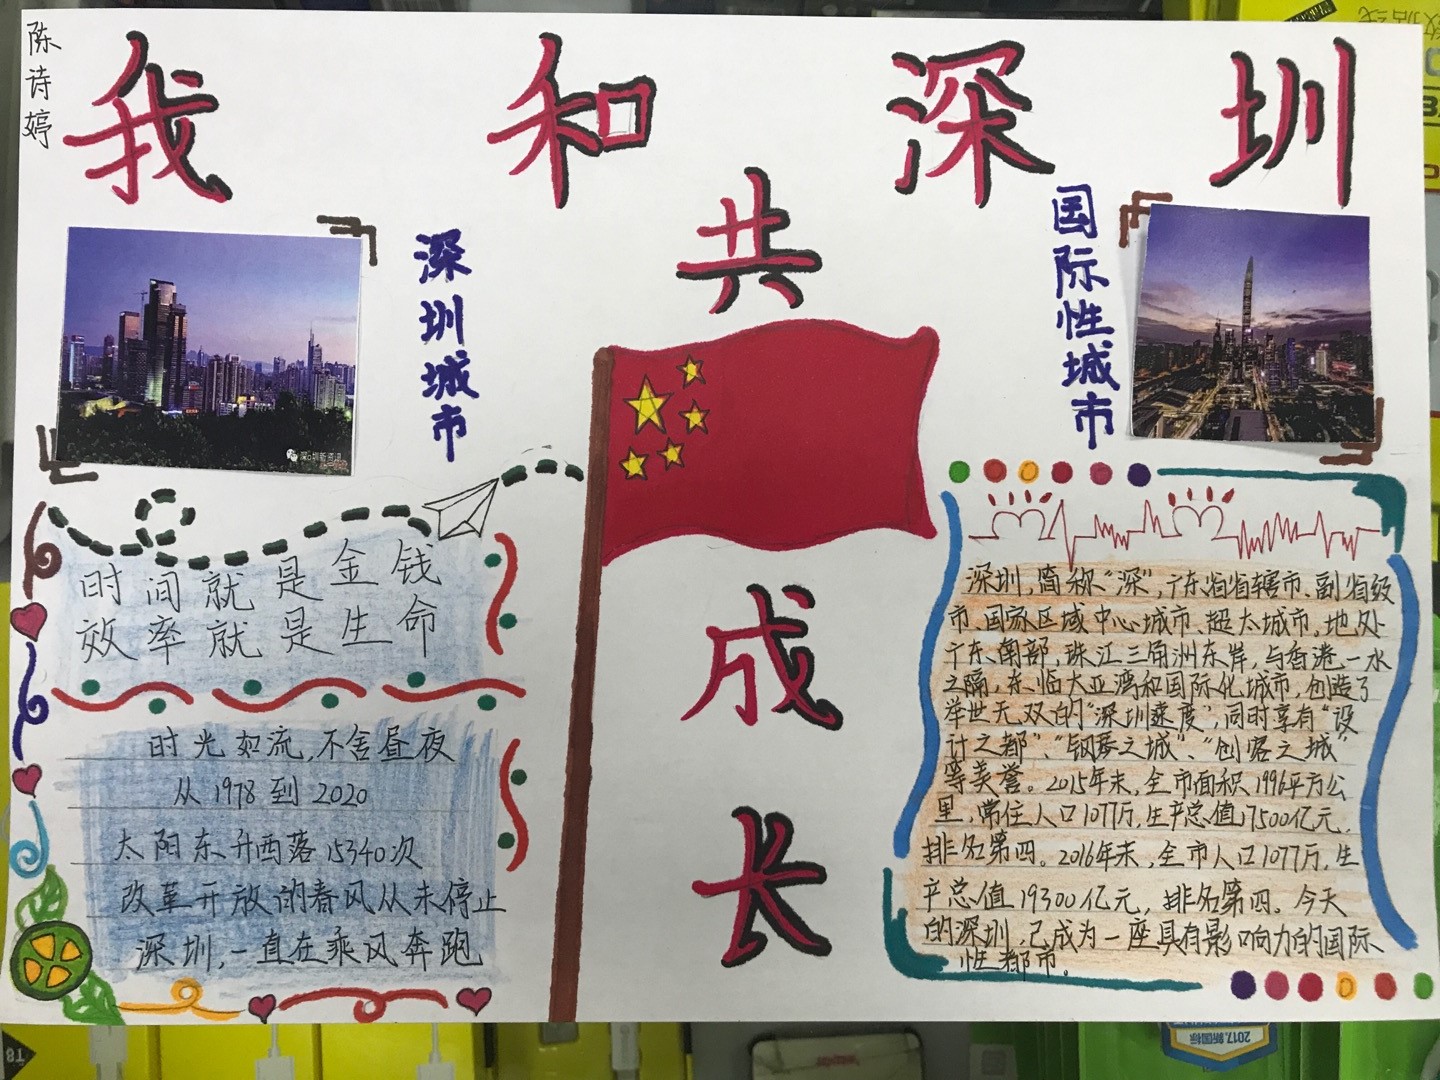 陈诗婷
我和深圳
共
成
长
深圳城市
国际性城市
时间就是金钱
效率就是生命
时光如流,不舍昼夜
从1978到2020
太阳东升西落15340次
改革开放的春风从未停止
深圳,一直在乘风奔跑
深圳,简称“深”,广东省省辖市、副省级
市、国家区域中心城市、超大城市,地处
广东南部,珠江三角洲东岸,与香港一水
之隔,东临大亚湾和国际化城市,创造了
举世无双的“深圳速度”,同时享有“设
计之都”、“钢琴之城”、“创客之城”
等美誉。2015年末,全市面积1996平方公
里,常住人口1077万,生产总值17500亿元,
排名第四。2016年末,全市人口1077万,生
产总值19300亿元,排名第四。今天
的深圳,已成为一座具有影响力的国际
性都市。
2017.新国标
T8